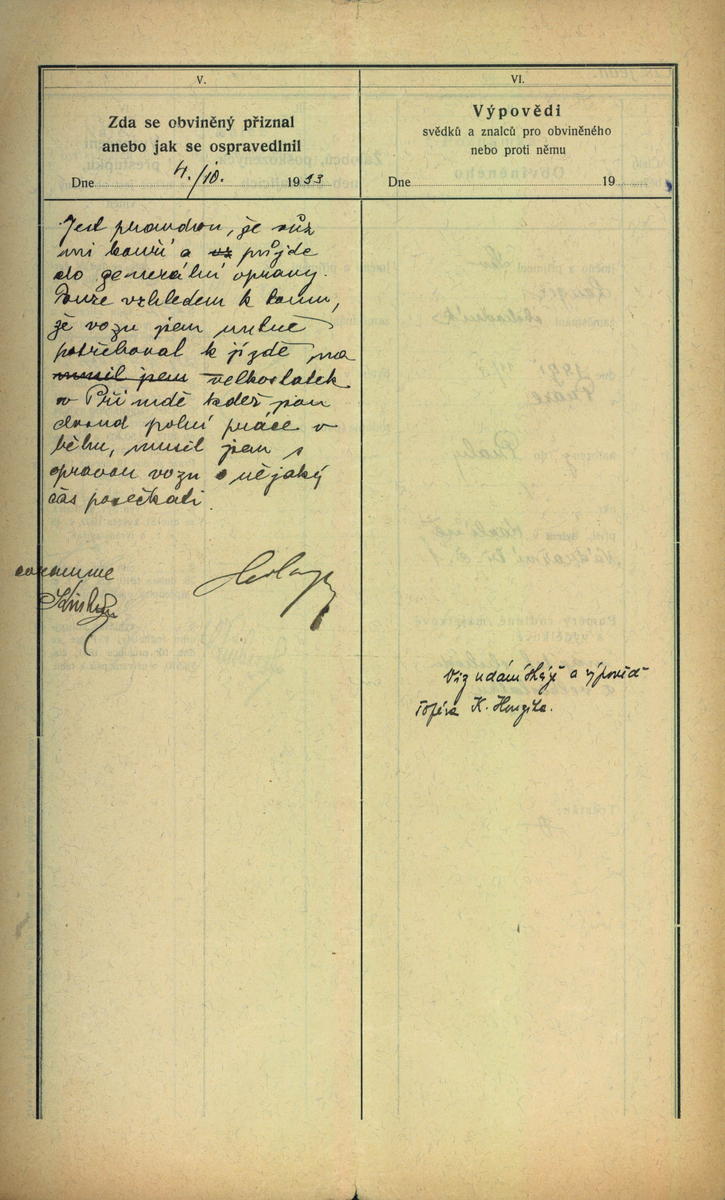 V.
Zda se obviněný přiznal
anebo jak se ospravedlnil
Dne 4./10. 1933
Jest pravdou, že vůz
mi kouří a už přijde
do generální opravy.
Pouze vzhledem k tomu,
že vozu jsem nutně
potřeboval k jízdě na
musil jsem velkostatek
v Přimdě kdež jsou
dosud polní práce v
běhu, musil jsem s
opravou vozu nějaký
čas posečkati.
VI.
Výpovědi
svědků a znalců pro obviněného
nebo proti němu
Dne 19
Viz udání stráže a výpověď
K.